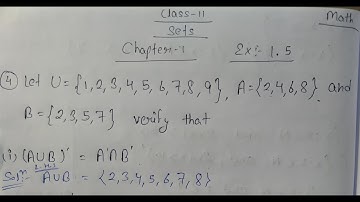 Class-11
Math
Sets
Chapter-1 Ex:- 1.5
④ Let U = {1,2,3,4,5,6,7,8,9}, A={2,4,6,8} and
B = {2,3,5,7} verify that
(i) (A∪B)' = A'∩B'
L.H.S
Sol:- A∪B = {2,3,4,5,6,7,8}